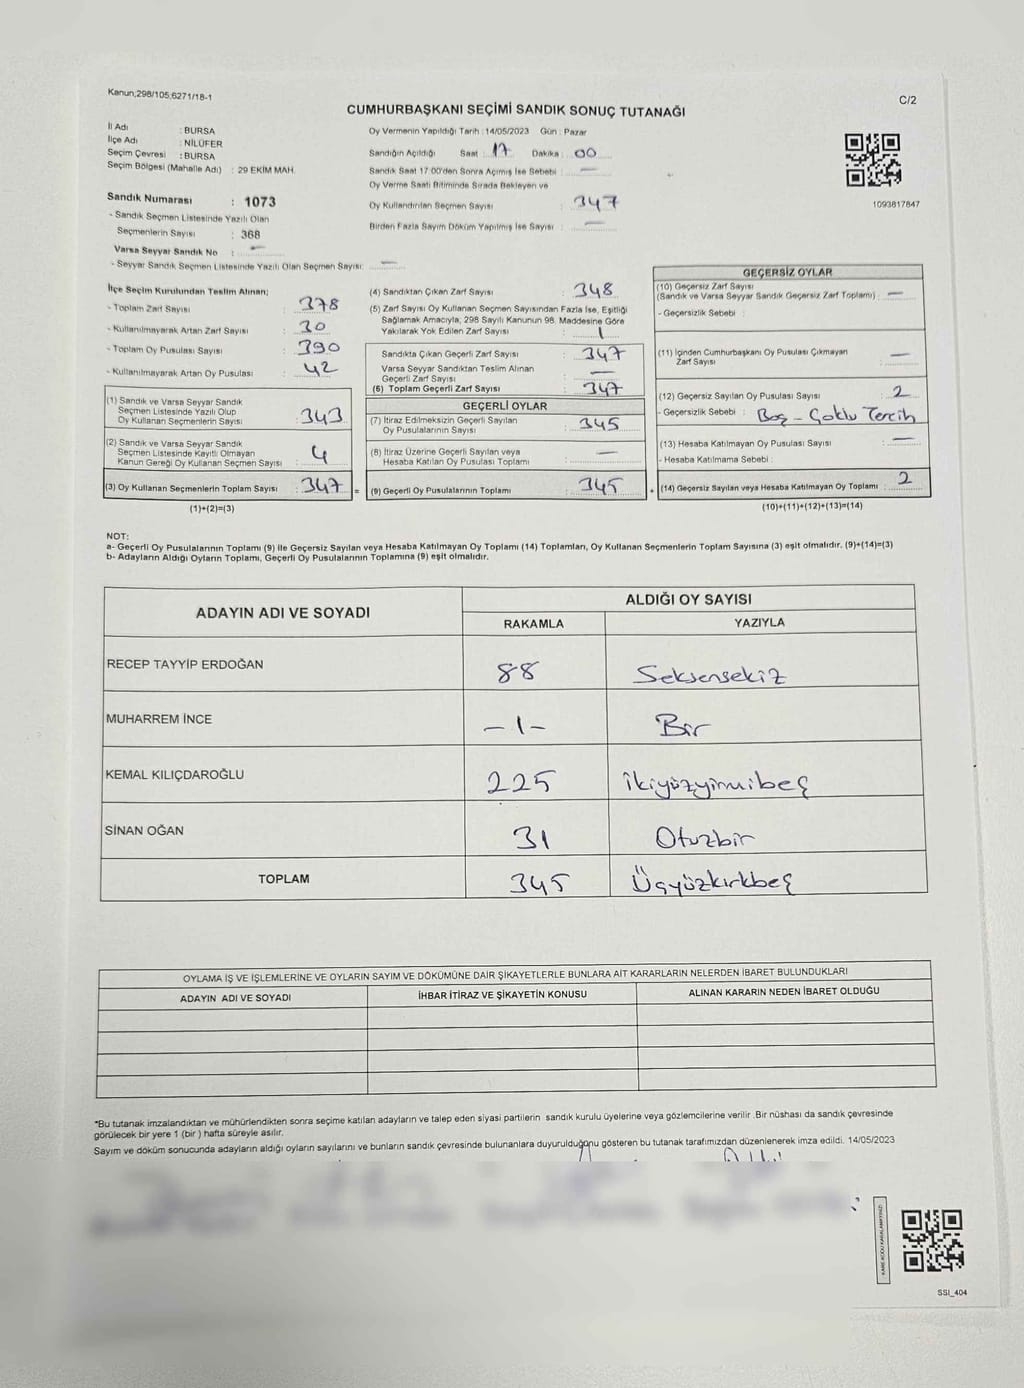 Kanun;298/105;6271/18-1
C/2
CUMHURBAŞKANI SEÇİMİ SANDIK SONUÇ TUTANAĞI
İl Adı : BURSA
İlçe Adı : NİLÜFER
Seçim Çevresi : BURSA
Seçim Bölgesi (Mahalle Adı) : 29 EKİM MAH.
Sandık Numarası : 1073
- Sandık Seçmen Listesinde Yazılı Olan
Seçmenlerin Sayısı : 368
Varsa Seyyar Sandık No : —
- Seyyar Sandık Seçmen Listesinde Yazılı Olan Seçmen Sayısı: —
Oy Vermenin Yapıldığı Tarih : 14/05/2023 Gün : Pazar
Sandığın Açıldığı Saat : 17 Dakika : 00
Sandık Saat 17:00'den Sonra Açılmış İse Sebebi : —
Oy Verme Saati Bitiminde Sırada Bekleyen ve
Oy Kullandırılan Seçmen Sayısı : 347
Birden Fazla Sayım Döküm Yapılmış İse Sayısı : —
1093817847
İlçe Seçim Kurulundan Teslim Alınan;
- Toplam Zarf Sayısı : 378
- Kullanılmayarak Artan Zarf Sayısı : 30
- Toplam Oy Pusulası Sayısı : 390
- Kullanılmayarak Artan Oy Pusulası : 42
(1) Sandık ve Varsa Seyyar Sandık
Seçmen Listesinde Yazılı Olup
Oy Kullanan Seçmenlerin Sayısı : 343
(2) Sandık ve Varsa Seyyar Sandık
Seçmen Listesinde Kayıtlı Olmayan
Kanun Gereği Oy Kullanan Seçmen Sayısı : 4
(3) Oy Kullanan Seçmenlerin Toplam Sayısı : 347 =
(1)+(2)=(3)
(4) Sandıktan Çıkan Zarf Sayısı : 348
(5) Zarf Sayısı Oy Kullanan Seçmen Sayısından Fazla İse, Eşitliği
Sağlamak Amacıyla, 298 Sayılı Kanunun 98. Maddesine Göre
Yakılarak Yok Edilen Zarf Sayısı : 1
Sandıkta Çıkan Geçerli Zarf Sayısı : 347
Varsa Seyyar Sandıktan Teslim Alınan
Geçerli Zarf Sayısı : —
(6) Toplam Geçerli Zarf Sayısı : 347
GEÇERLİ OYLAR
(7) İtiraz Edilmeksizin Geçerli Sayılan
Oy Pusulalarının Sayısı : 345
(8) İtiraz Üzerine Geçerli Sayılan veya
Hesaba Katılan Oy Pusulası Toplamı : —
(9) Geçerli Oy Pusulalarının Toplamı : 345 +
GEÇERSİZ OYLAR
(10) Geçersiz Zarf Sayısı
(Sandık ve Varsa Seyyar Sandık Geçersiz Zarf Toplamı) : —
- Geçersizlik Sebebi :
(11) İçinden Cumhurbaşkanı Oy Pusulası Çıkmayan
Zarf Sayısı : —
(12) Geçersiz Sayılan Oy Pusulası Sayısı : 2
- Geçersizlik Sebebi : Boş - Çoklu Tercih
(13) Hesaba Katılmayan Oy Pusulası Sayısı : —
- Hesaba Katılmama Sebebi :
(14) Geçersiz Sayılan veya Hesaba Katılmayan Oy Toplamı : 2
(10)+(11)+(12)+(13)=(14)
NOT:
a- Geçerli Oy Pusulalarının Toplamı (9) ile Geçersiz Sayılan veya Hesaba Katılmayan Oy Toplamı (14) Toplamları, Oy Kullanan Seçmenlerin Toplam Sayısına (3) eşit olmalıdır. (9)+(14)=(3)
b- Adayların Aldığı Oyların Toplamı, Geçerli Oy Pusulalarının Toplamına (9) eşit olmalıdır.
ADAYIN ADI VE SOYADI
ALDIĞI OY SAYISI
RAKAMLA YAZIYLA
RECEP TAYYİP ERDOĞAN 88 Seksensekiz
MUHARREM İNCE -1- Bir
KEMAL KILIÇDAROĞLU 225 ikiyüzyirmibeş
SİNAN OĞAN 31 Otuzbir
TOPLAM 345 Üçyüzkırkbeş
OYLAMA İŞ VE İŞLEMLERİNE VE OYLARIN SAYIM VE DÖKÜMÜNE DAİR ŞİKAYETLERLE BUNLARA AİT KARARLARIN NELERDEN İBARET BULUNDUKLARI
ADAYIN ADI VE SOYADI İHBAR İTİRAZ VE ŞİKAYETİN KONUSU ALINAN KARARIN NEDEN İBARET OLDUĞU
*Bu tutanak imzalandıktan ve mühürlendikten sonra seçime katılan adayların ve talep eden siyasi partilerin sandık kurulu üyelerine veya gözlemcilerine verilir .Bir nüshası da sandık çevresinde
görülecek bir yere 1 (bir ) hafta süreyle asılır.
Sayım ve döküm sonucunda adayların aldığı oyların sayılarını ve bunların sandık çevresinde bulunanlara duyurulduğunu gösteren bu tutanak tarafımızdan düzenlenerek imza edildi. 14/05/2023
KARE KODU KARALAMAYINIZ!
SSI_404